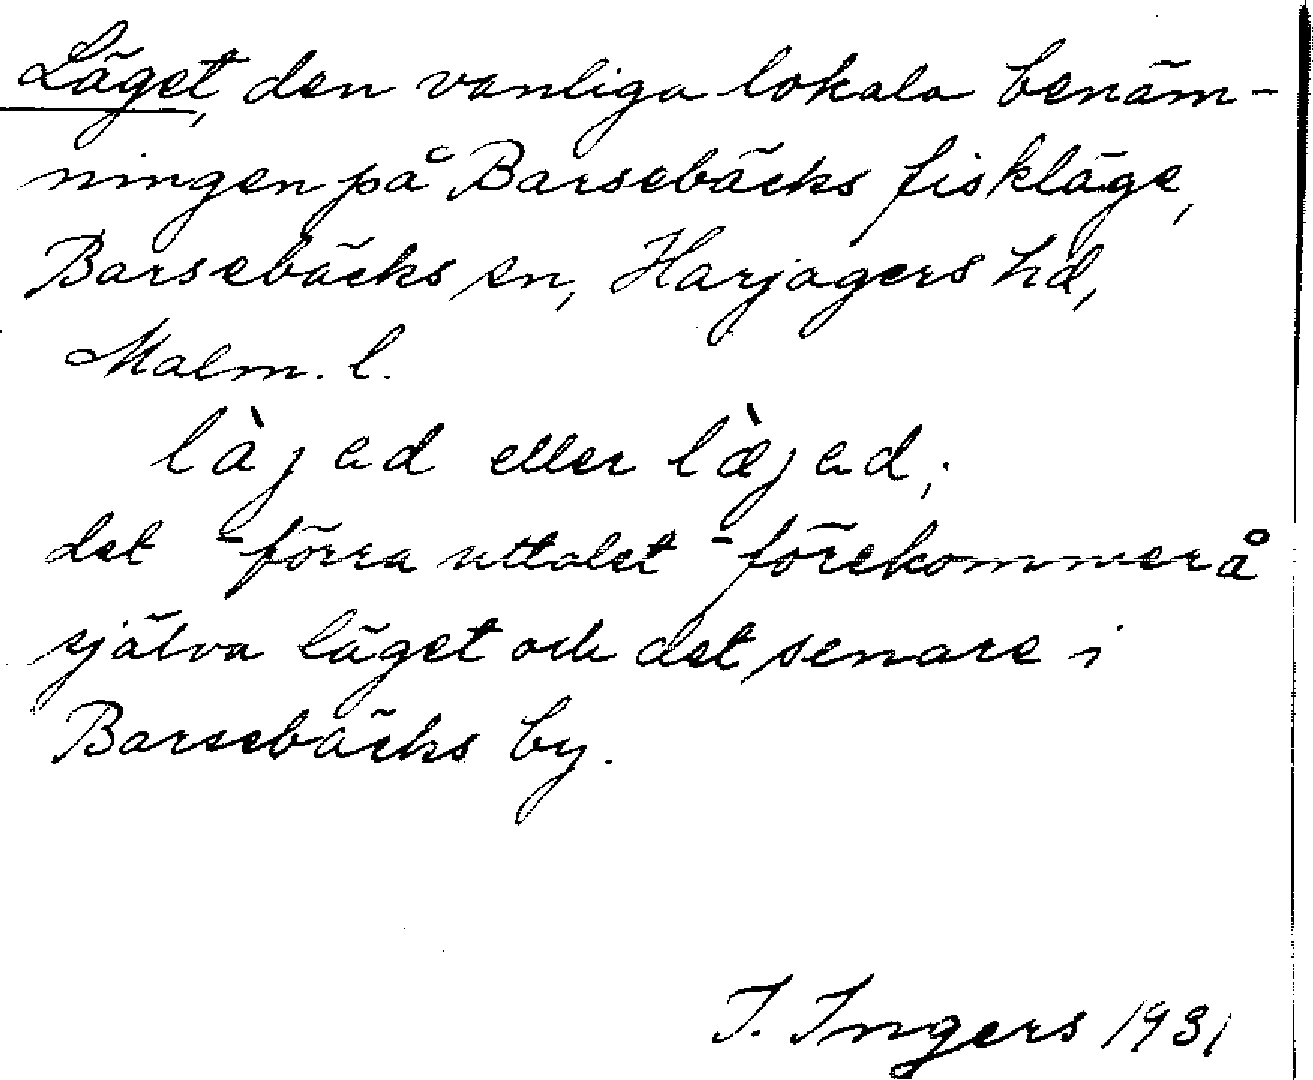 Läget, den vanliga lokala benäm-
ningen på Barsebäcks fiskläge,
Barsebäcks sn, Harjagers hd,
Malm. l.
làjəd eller læ̀jəd;
det förra uttalet förekommer å
själva läget och det senare i
Barsebäcks by.
I. Ingers 1931